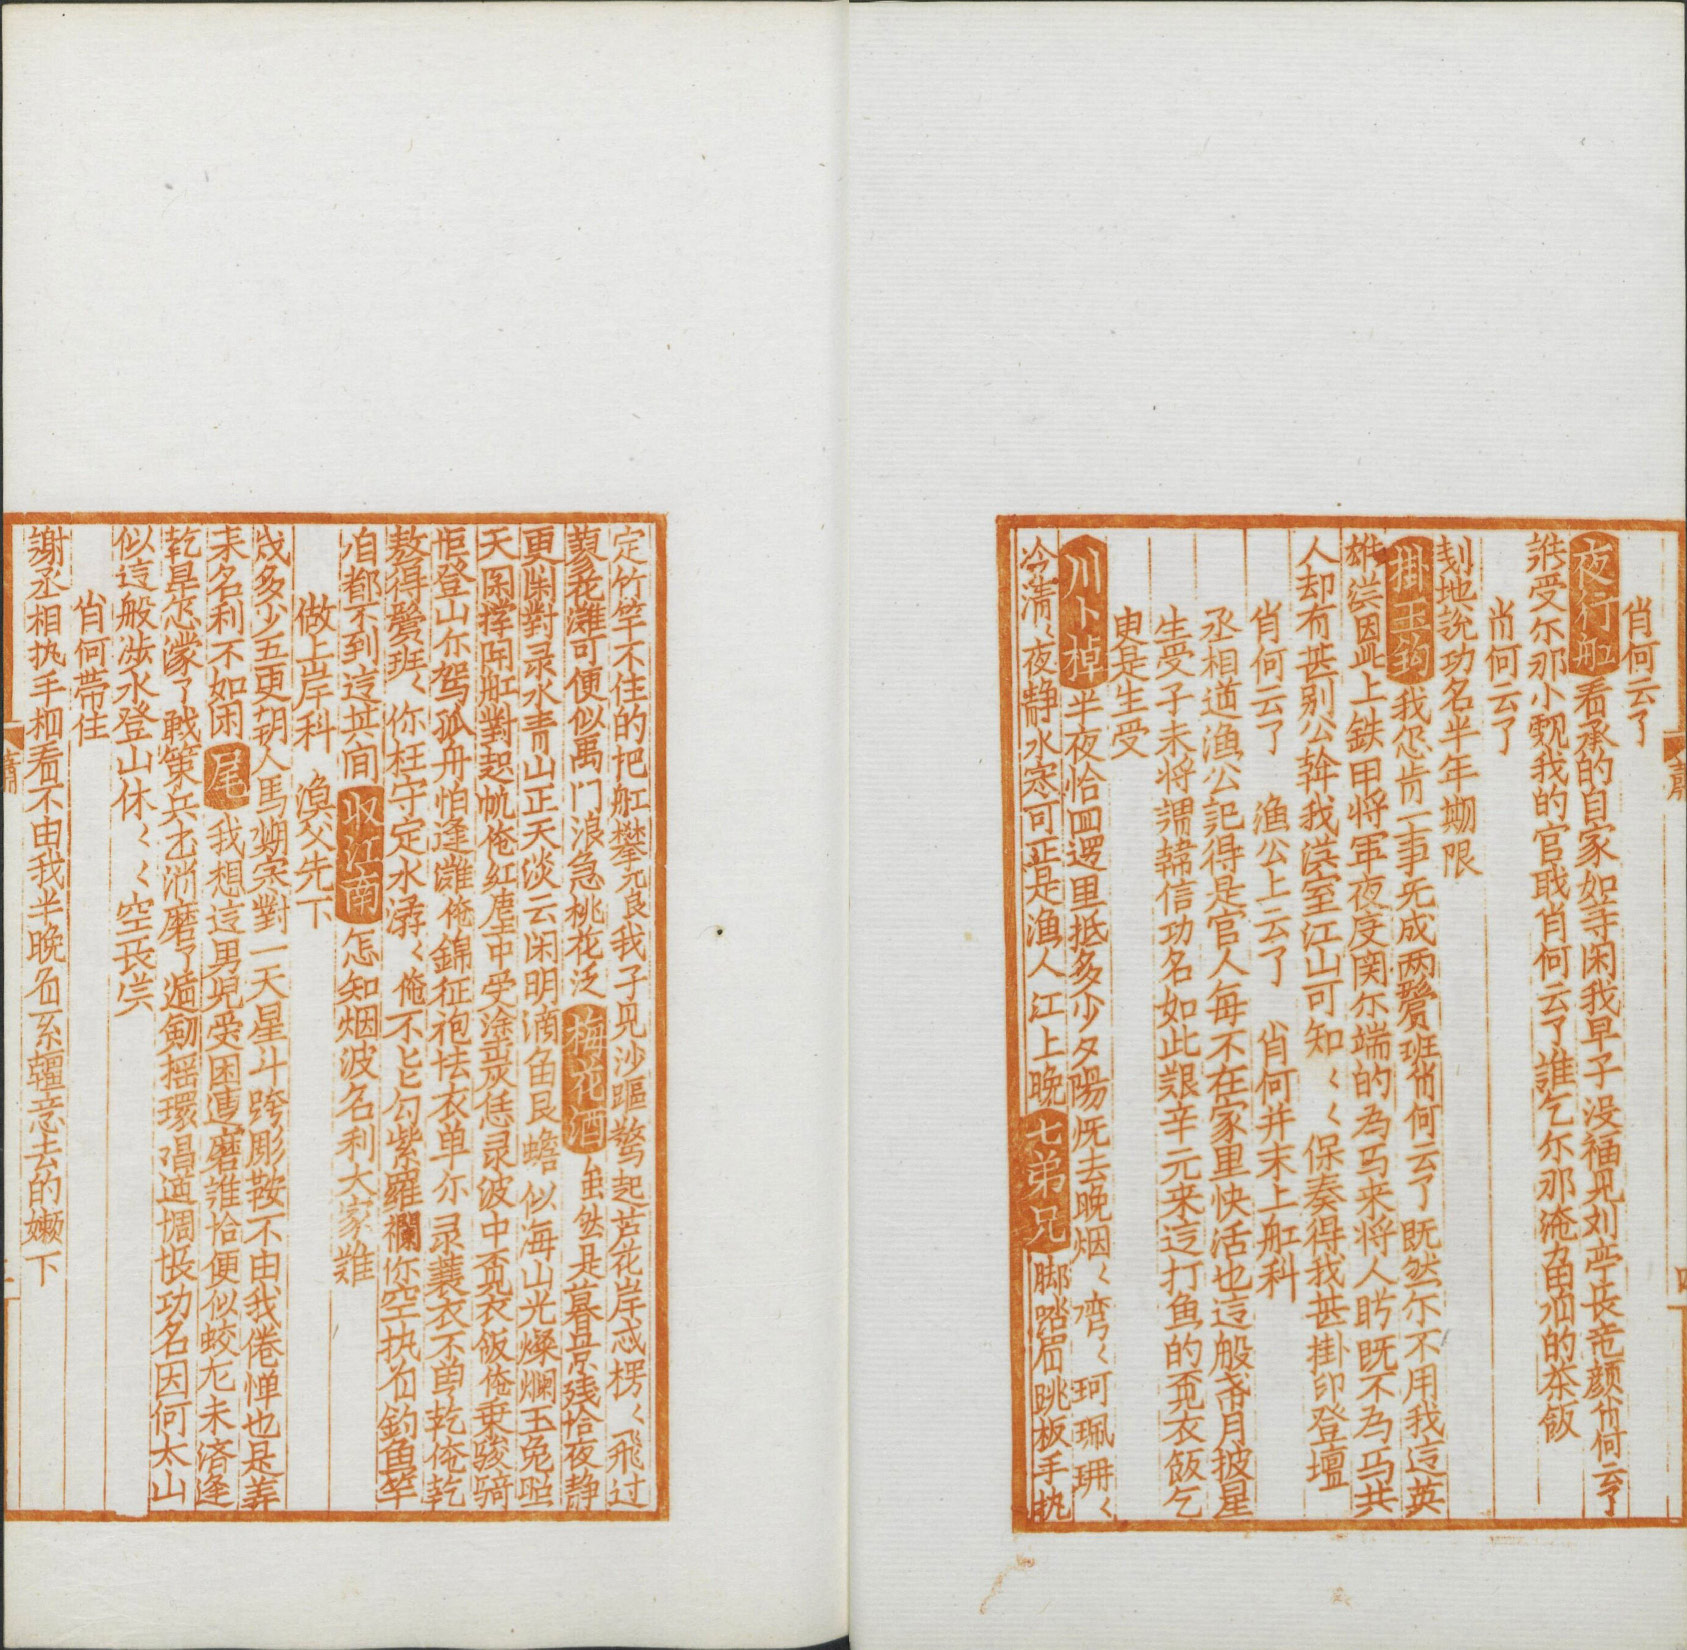 肖何云了
夜行舡 看承的自家如等闲我早子没福见刘亭长竜颜肖何云了
谁受尔那小觑我的官职肖何云了谁乞尔那淹 的茶飯
肖何云了
刬地説功名半年期限
掛玉鈎 我怎肯一事无成两鬢班肖何云了既然尔不用我這英
雄漢因此上鉄甲将军夜度関尔端的為马来将人盻既不為马共
人却有甚别公幹我漢室江山可知〻〻保奏得我甚掛印登壇
肖何云了 渔公上云了 肖何并末上舡科
丞相道渔公説得是官人每不在家里快活也這般帶月披星
生受子末将謂韓信功名如此艱辛元来這打鱼的觅衣飯乞
更是生受
川卜棹 半夜恰回还里抵多少夕陽既去晚烟〻湾〻珂珮珊〻
冷清〻夜静水寒可正是渔人江上晚 七弟兄 脚踏着跳板手执
定竹竿不住的把舡攀兀良我子见沙鷗驚起芦花岸忒楞〻飛过
蓼花灘可便似禹门浪急桃花泛 梅花酒 虽然是暮景残恰夜静
更闌對录水青山正天淡云闲明滴 银蟾似海山光燦爛玉兔照
天関撑開舡對起帆俺红塵中受塗炭恁录波中觅衣飯俺乗駿骑
怯登山尔驾孤舟怕逢灘俺錦征袍怯衣单尔录蓑衣不曾乾俺乾
熬得鬢班〻你枉守定水潺〻俺不能勾紫羅襴你空执着釣鱼竿
咱都不到這其间 收江南 怎知烟波名利大家難
做上岸科 渔父先下
戍多少五更胡人馬 對一天星斗跨彫鞍不由我倦憚也是算
来名利不如闲 尾 我想這男兒受困遭磨难恰便似蛟尨未济逢
乾旱怎濛了戰策兵书消磨了 剱摇環唱道惆悵功名因何太山
似這般涉水登山休〻〻空長叹
肖何帶住
謝丞相执手相看不由我半晚着系繮意去的嬾下